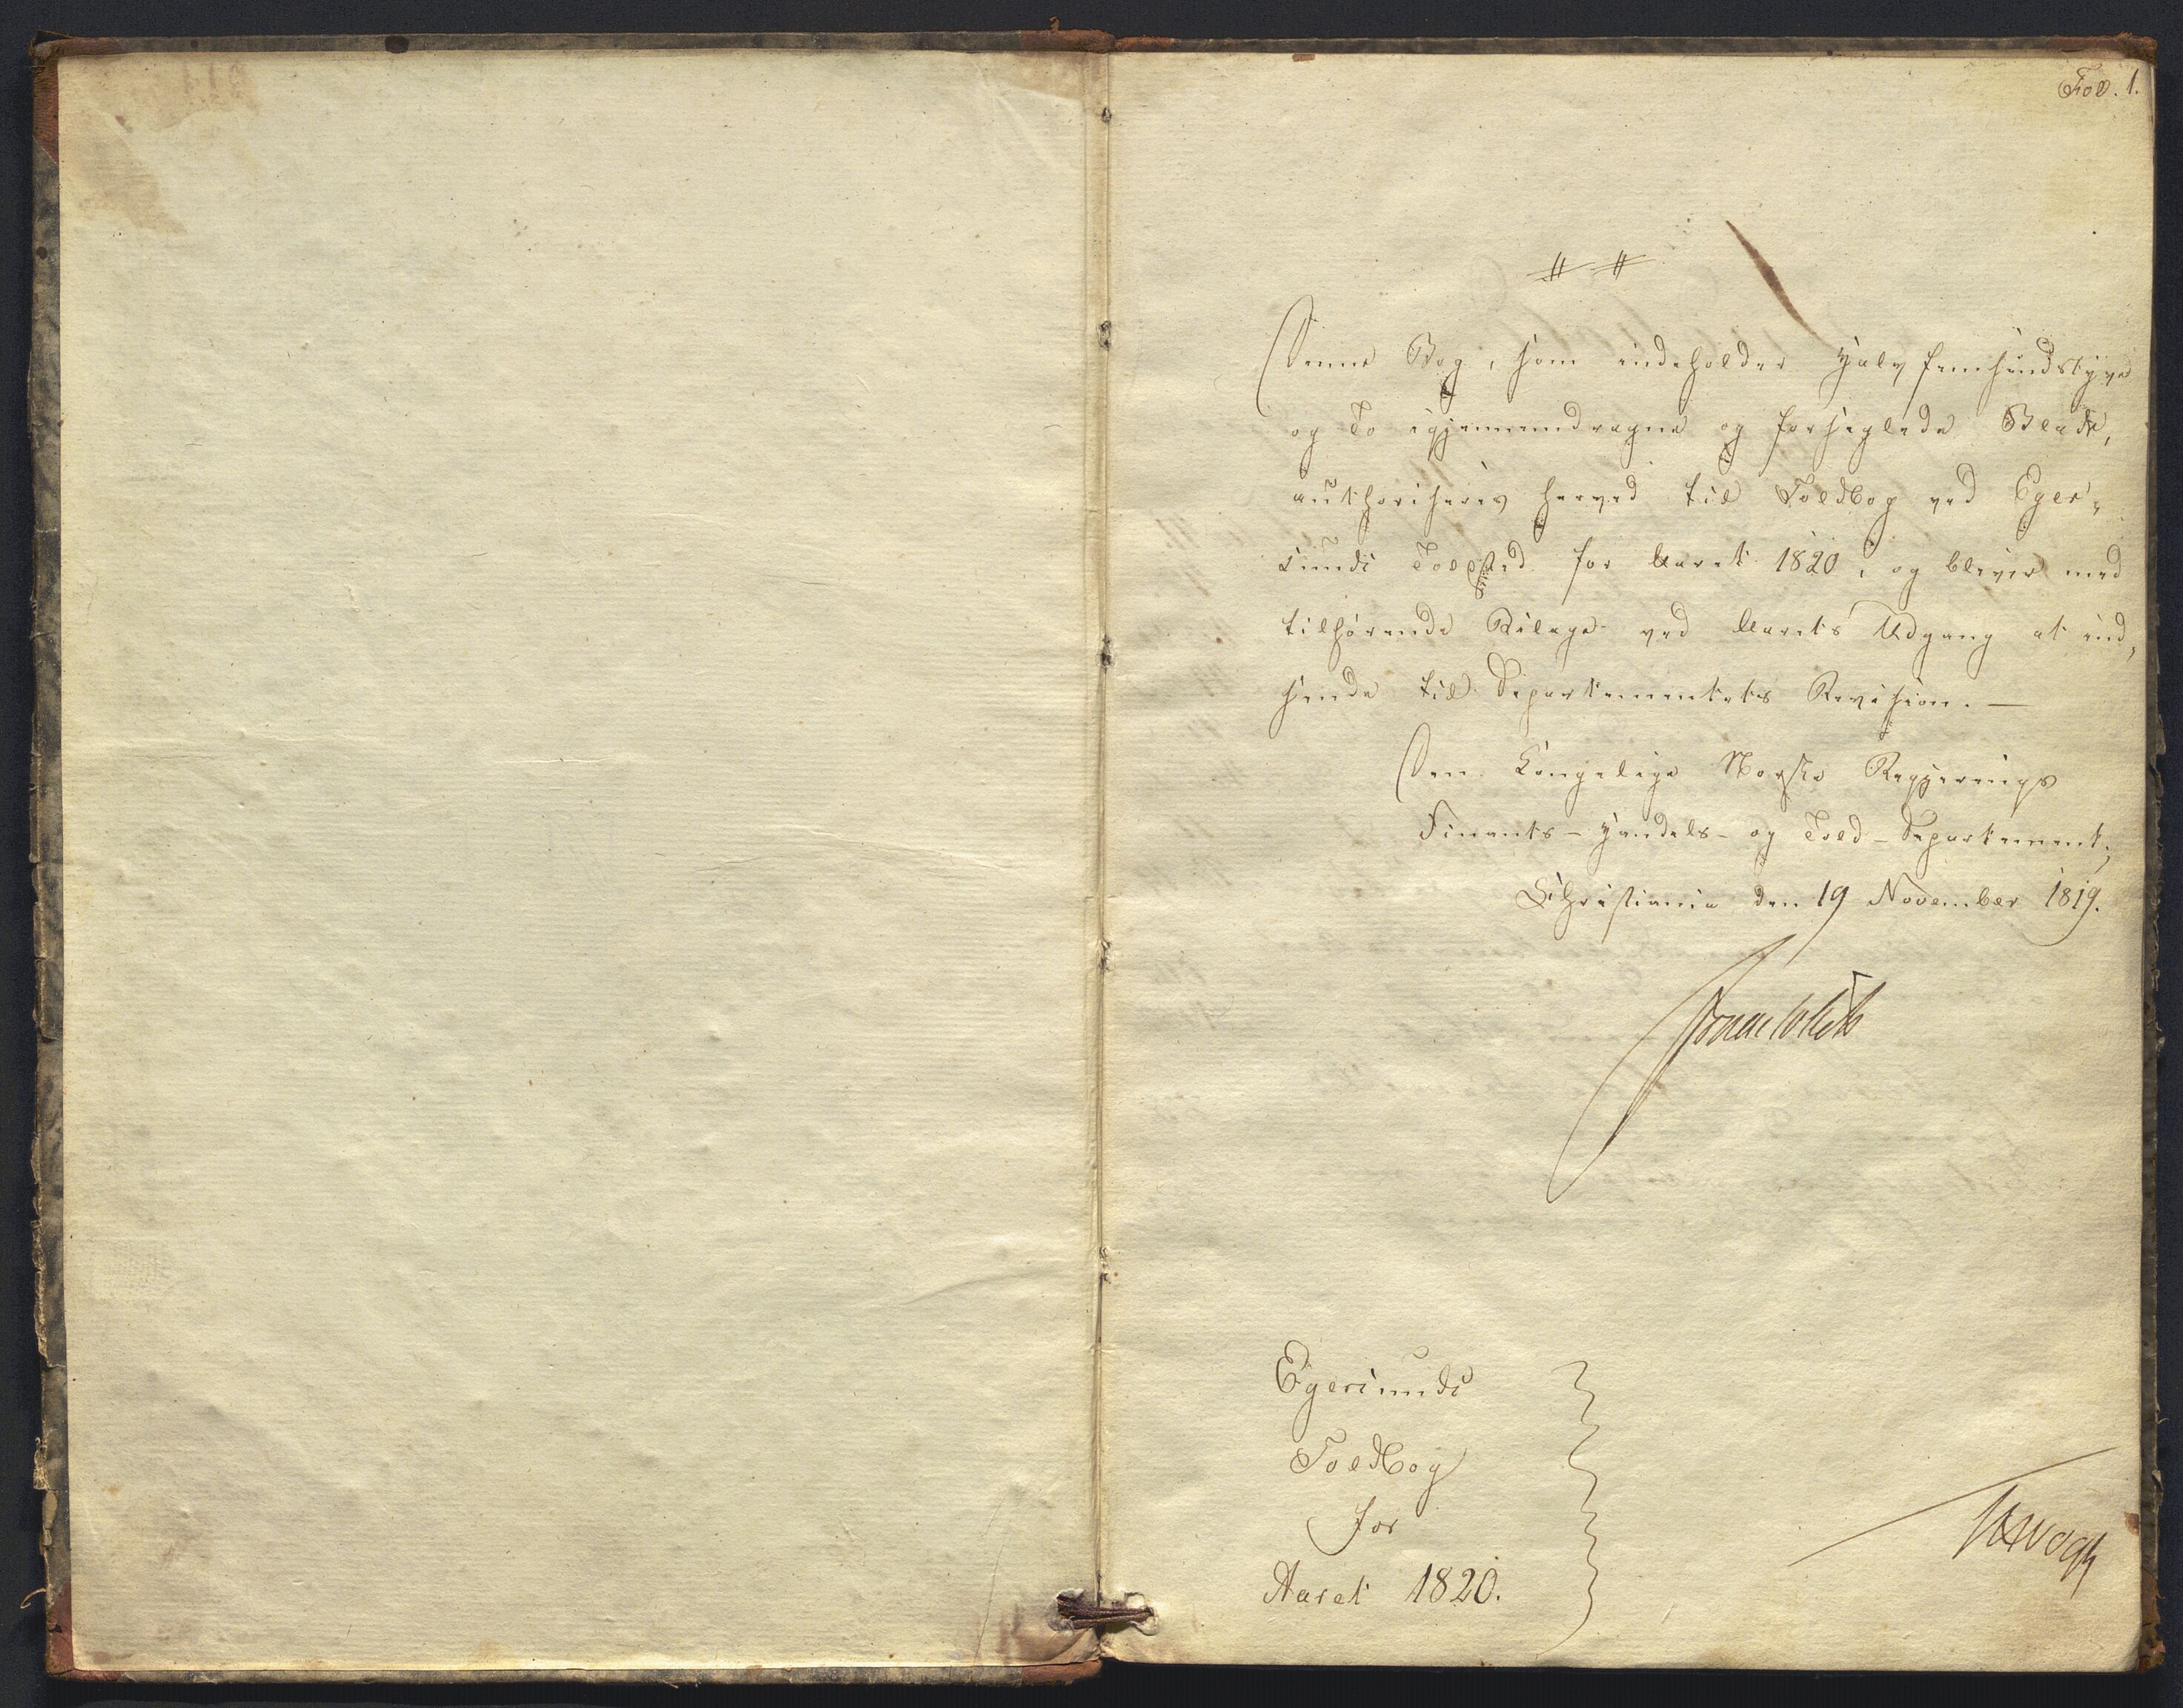 Fol. 1.
Denne Bog, som indeholder Halvfemsindstyve
og To igjennemdragne og forseglede Blade,
authoriseres herved til Toldbog ved Eger-
sunds Toldsted for Aaret 1820, og bliver med
tilhørende Bilage ved Aarets Udgang at ind-
sende til Departementets Revision. —
Den Kongelige Norske Regjerings
Finants- Handels- og Told-Departement,
Christiania den 19 November 1819.
Egersunds
Toldbog
for
Aaret 1820.